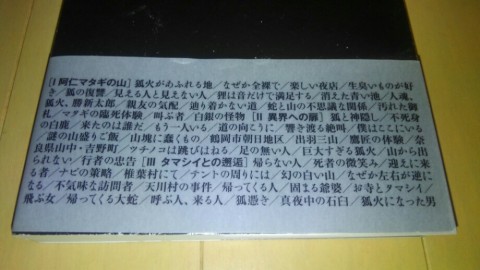 [Ⅰ 阿仁マタギの山] 狐火があふれる地/なぜか全裸で/楽しい夜店/生臭いものが好
き/狐の復讐/見える人と見えない人/狸は音だけで満足する/消えた青い池/人魂、
狐火、勝新太郎/親友の気配/辿り着かない道/蛇と山の不思議な関係/汚れた御
札/マタギの臨死体験/叫ぶ者/白銀の怪物 [Ⅱ 異界への扉] 狐と神隠し/不死身
の白鹿/来たのは誰だ/もう一人いる/道の向こうに/響き渡る絶叫/僕はここにいる
/謎の山盛りご飯/山塊に蠢くもの/鶴岡市朝日地区/出羽三山/鷹匠の体験/奈
良県山中・吉野町/ツチノコは跳びはねる/足の無い人/巨大すぎる狐火/山から出
られない/行者の忠告 [Ⅲ タマシイとの邂逅] 帰らない人/死者の微笑み/迎えに来
る者/ナビの策略/椎葉村にて/テントの周りには/幻の白い山/なぜか左右が逆に
なる/不気味な訪問者/天川村の事件/帰ってくる人/固まる爺婆/お寺とタマシイ/
飛ぶ女/帰ってくる大蛇/呼ぶ人、来る人/狐憑き/真夜中の石臼/狐火になった男